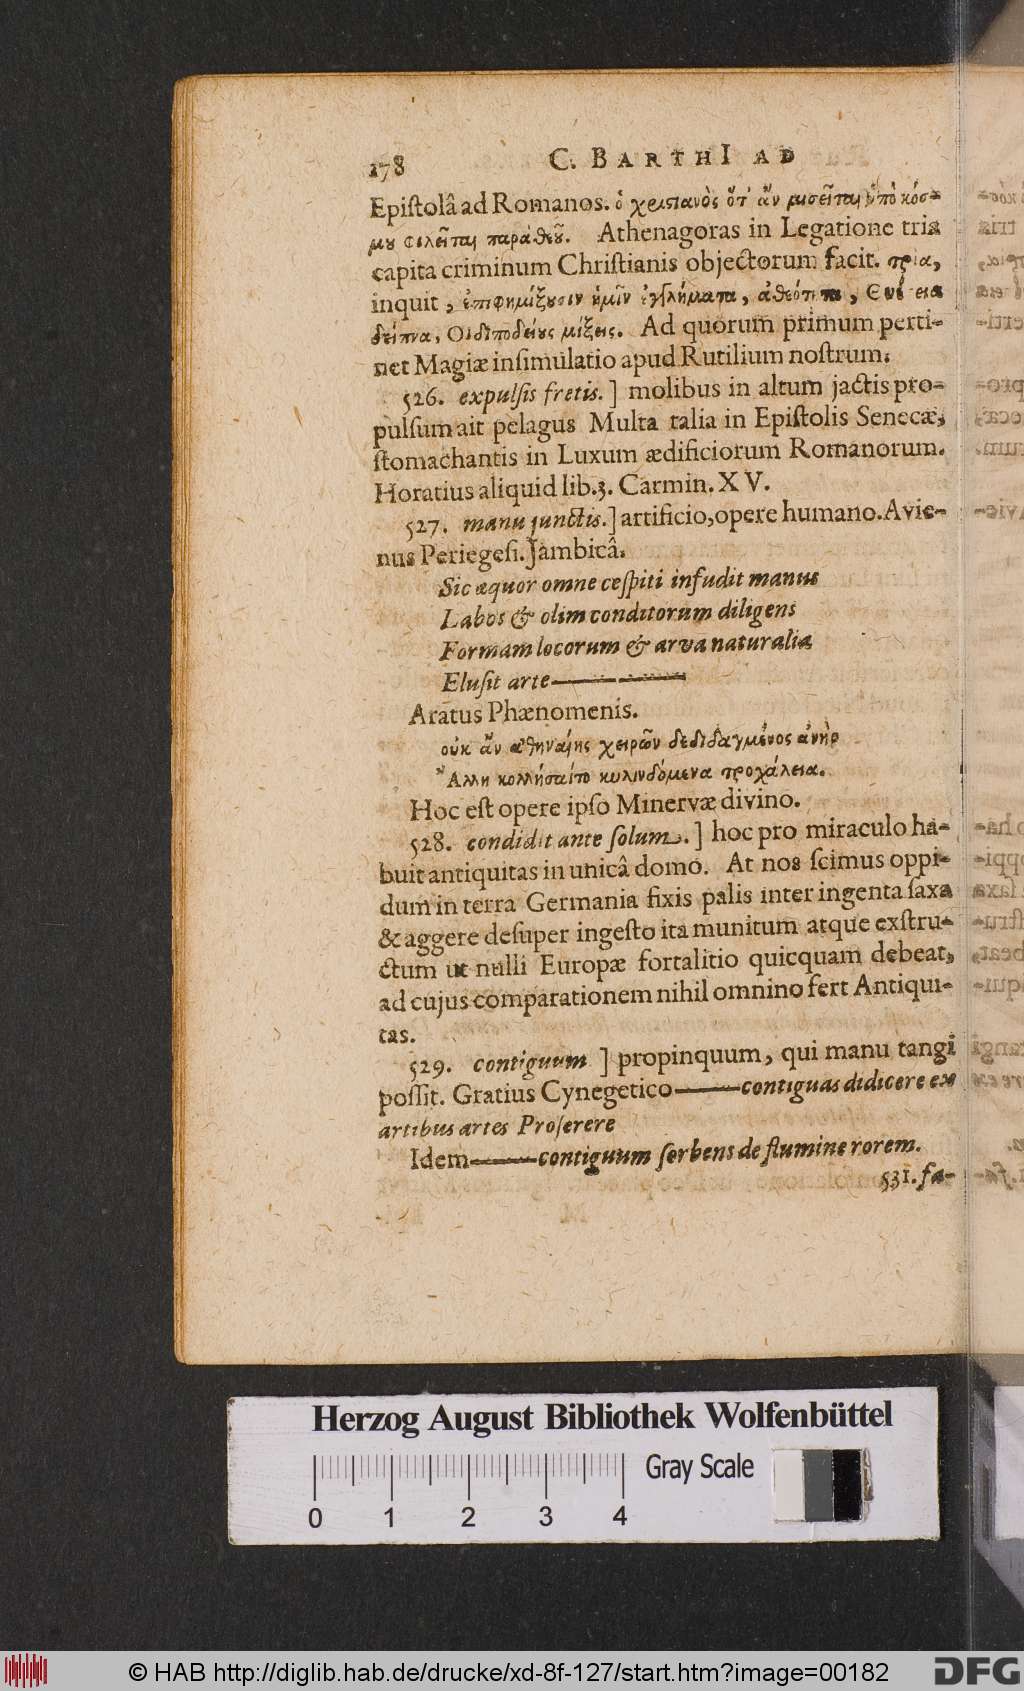 178 C. BARTHI AD
Epiſtolâ ad Romanos. ὁ χριστιανὸς ὅτ᾽ ἂν μισεῖται ὑπὸ κόσ-
μου φιλεῖται παρὰ θεοῦ. Athenagoras in Legatione tria
capita criminum Chriſtianis objectorum facit. τρία,
inquit, ἐπιφημίζουσιν ἡμῖν ἐγκλήματα, ἀθεότητα, Θυέστεια
δεῖπνα, Οἰδιποδείους μίξεις. Ad quorum primum perti-
net Magiæ inſimulatio apud Rutilium noſtrum.
526. expulſis fretis.] molibus in altum jactis pro-
pulſum ait pelagus Multa talia in Epiſtolis Senecæ,
ſtomachantis in Luxum ædificiorum Romanorum.
Horatius aliquid lib.3. Carmin. XV.
527. manu junctis.] artificio, opere humano. Avie-
nus Periegeſi. Jambicâ.
Sic æquor omne ceſpiti infudit manus
Labos & olim conditorum diligens
Formam locorum & arva naturalia
Eluſit arte———
Aratus Phænomenis.
οὐκ ἂν ἀθηναίης χειρῶν δεδιδαγμένος ἀνὴρ
Ἄλλη κολλήσαιτο κυλινδόμενα τροχάλεια.
Hoc eſt opere ipſo Minervæ divino.
528. condidit ante ſolum.] hoc pro miraculo ha-
buit antiquitas in unicâ domo. At nos ſcimus oppi-
dum in terra Germania fixis palis inter ingenta ſaxa
& aggere deſuper ingeſto ita munitum atque exſtru-
ctum ut nulli Europæ fortalitio quicquam debeat,
ad cujus comparationem nihil omnino fert Antiqui-
tas.
529. contiguum ] propinquum, qui manu tangi
poſſit. Gratius Cynegetico———contiguas didicere ex
artibus artes Proſerere
Idem———contiguum ſerbens de flumine rorem.
531. fa-
Herzog August Bibliothek Wolfenbüttel
Gray Scale
0 1 2 3 4
© HAB http://diglib.hab.de/drucke/xd-8f-127/start.htm?image=00182
DFG